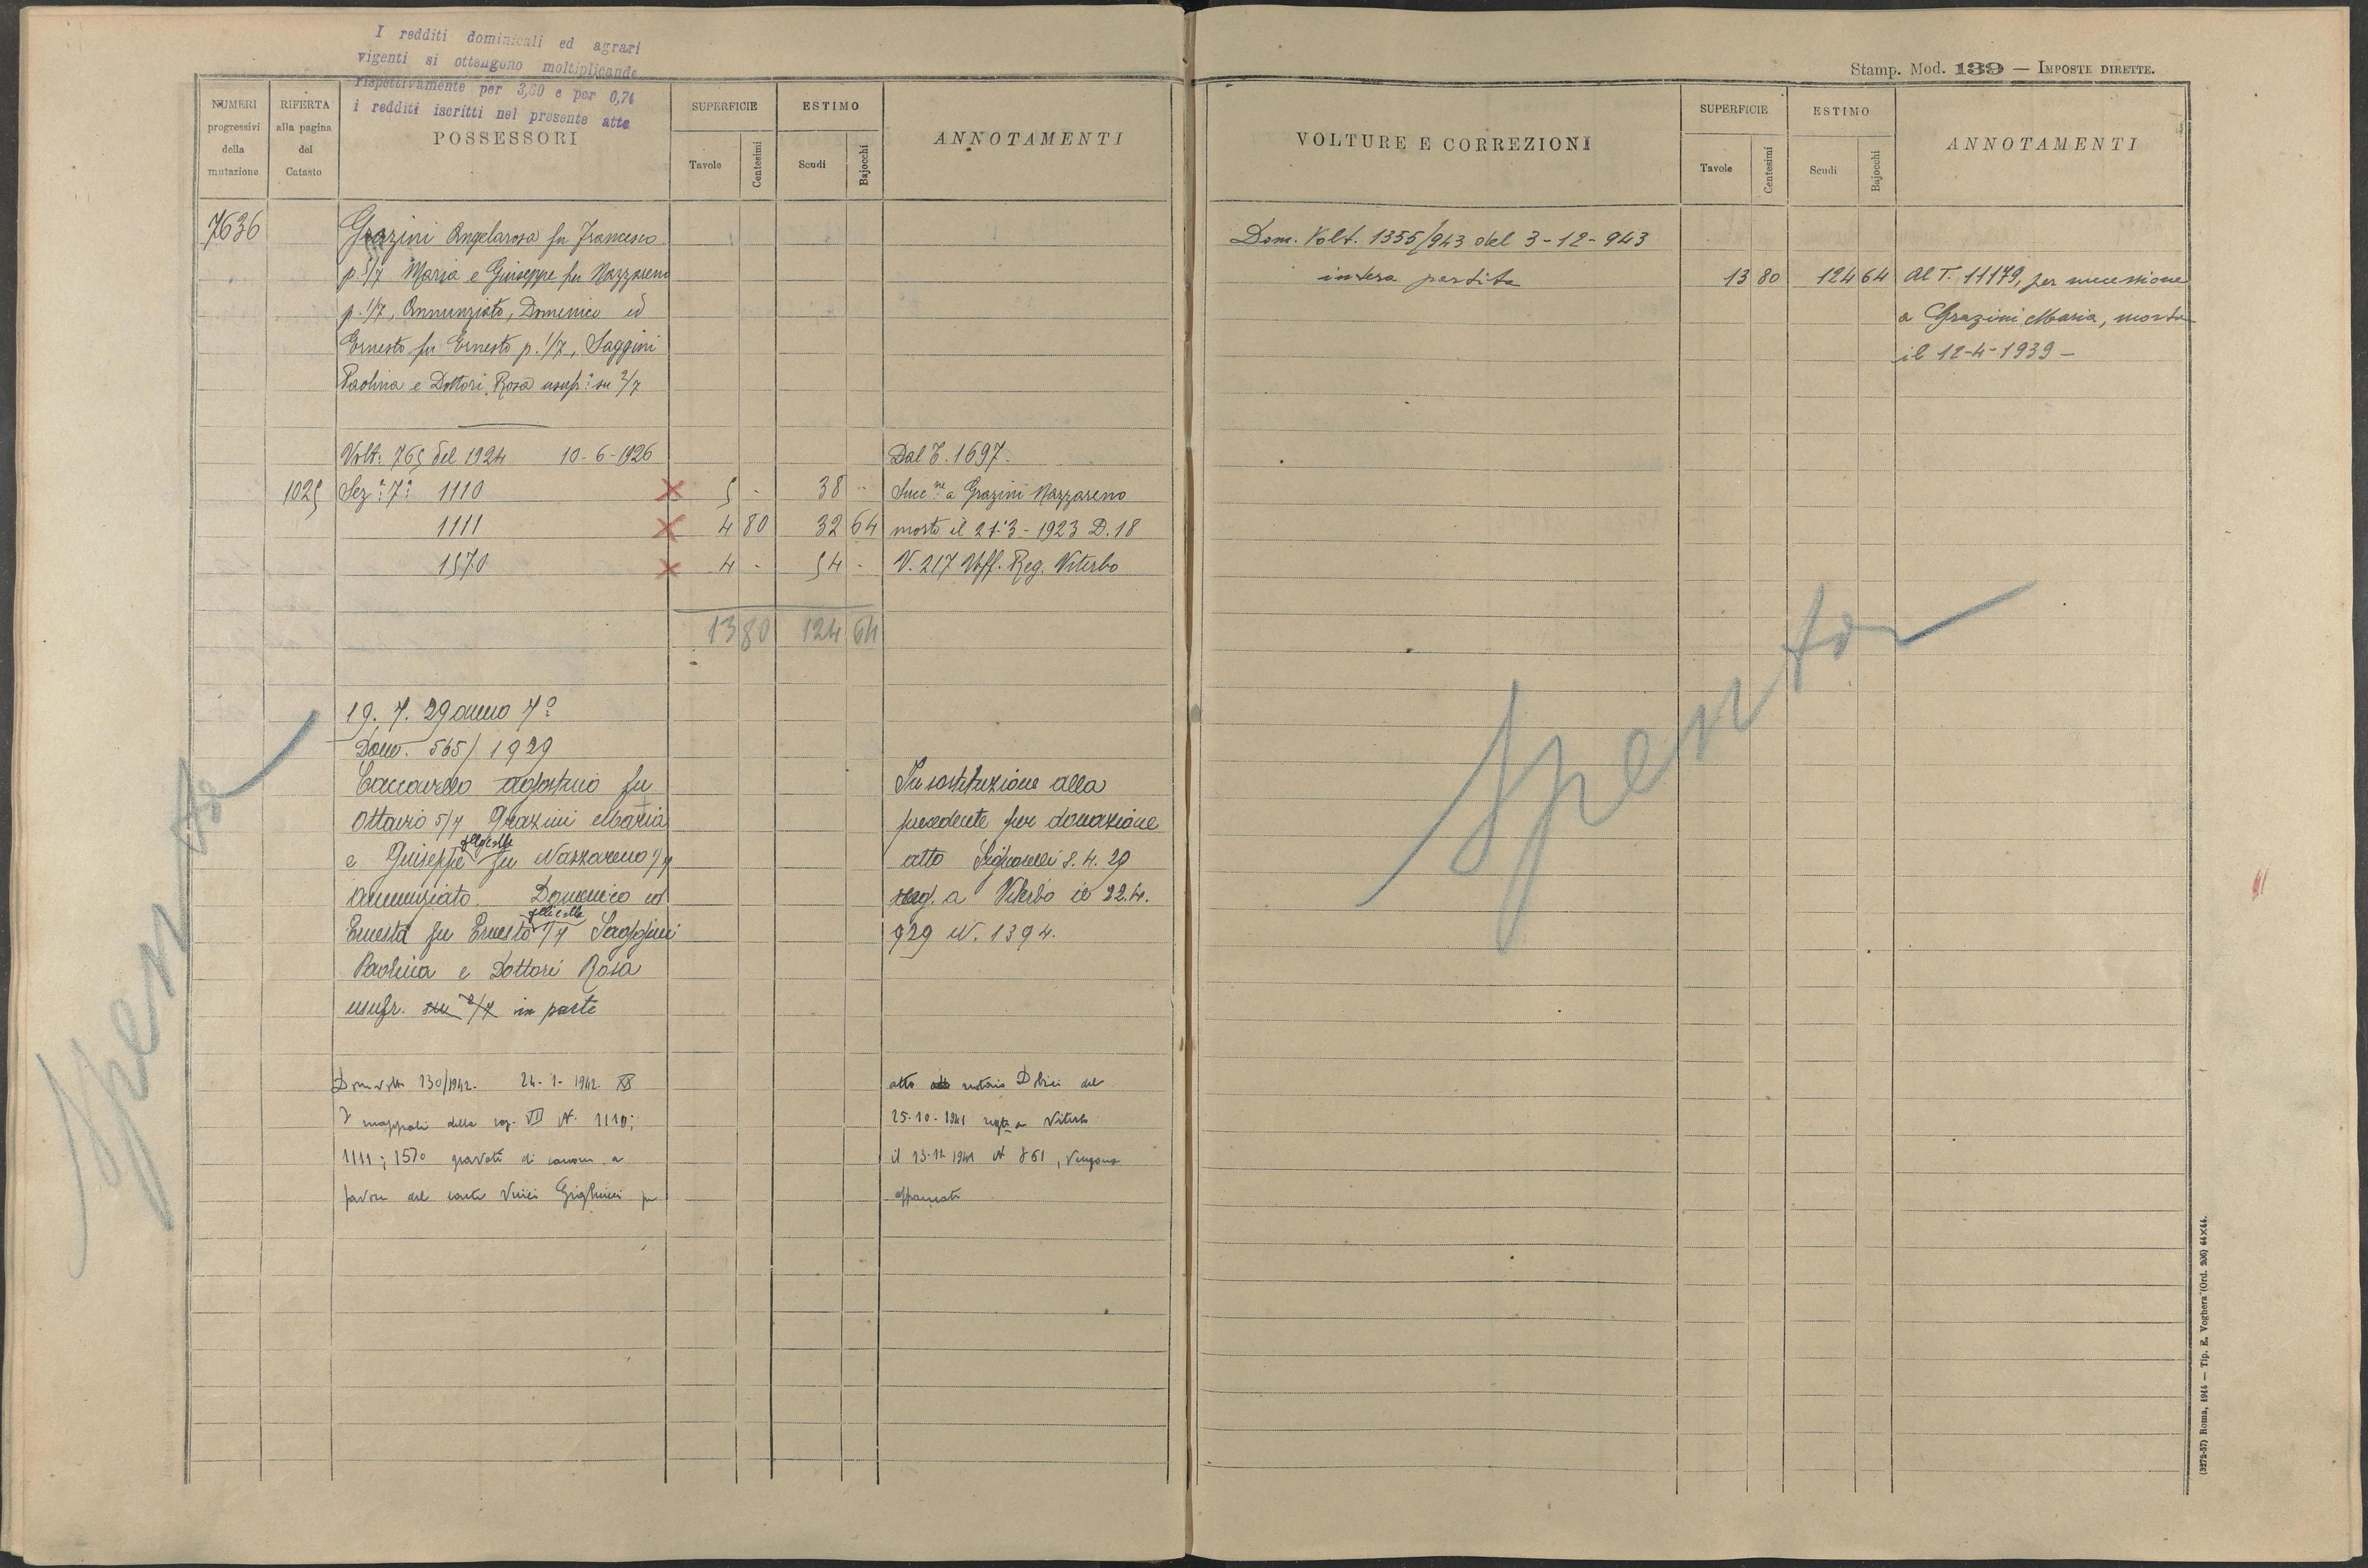 I redditi dominicali ed agrari
vigenti si ottengono moltiplicando
rispettivamente per 3,60 e per 0,74
i redditi iscritti nel presente atto
Stamp. Mod. 139 — IMPOSTE DIRETTE.
NUMERI progressivi della mutazione
RIFERTA alla pagina del Catasto
POSSESSORI
SUPERFICIE
Tavole
Centesimi
ESTIMO
Scudi
Bajocchi
ANNOTAMENTI
7636
Grazini Angelarosa fu Francesco
p. 5/7 Maria e Giuseppe fu Nazzareno
p. 1/7, Annunziato, Domenico ed
Ernesto fu Ernesto p. 1/7, Saggini
Paolina e Dottori Rosa usuf: su 2/7
Volt: 765 del 1924 10-6-1926
Dal T. 1697.
1025 Sez: 7: 1110 X 5 - 38 - Succ ne a Grazini Nazzareno
1111 X 4 80 32 64 morto il 21-3-1923 D. 18
1570 X 4 - 54 - V. 217 Uff. Reg. Viterbo
13 80 124 64
19. 7. 29 anno 7º
Dom. 565/1929
Caccarello Agostino fu
Ottavio 5/7 Grazini Maria
e Giuseppe fu Nazzareno 1/7
Annunziato Domenico ed
Ernesta fu Ernesto 1/7 Saggini
Paolina e Dottori Rosa
usufr. su 2/7 in parte
In sostituzione alla
precedente per donazione
atto Signorelli 8. 4. 29
reg. a Viterbo il 22.4.
929 N. 1394.
Dom volt 130/1942. 24-1-1942 XX
I mappali della sez. VII N. 1110;
1111; 1570 gravati di canone a
favore del conte Vinci Gigliucci
atto notaio del
25-10-1941 a Viterbo
il 13-11-1941 N 861, Vengono
affrancati
Spento
VOLTURE E CORREZIONI
SUPERFICIE
Tavole
Centesimi
ESTIMO
Scudi
Bajocchi
ANNOTAMENTI
Dom. Volt. 1355/943 del 3-12-943
intera partita 13 80 124 64 Al T. 11179, per successione
a Grazini Maria, morta
il 12-4-1939 -
Spento
(3275-57) Roma, 1914 — Tip. E. Voghera (Ord. 206) 64×44.